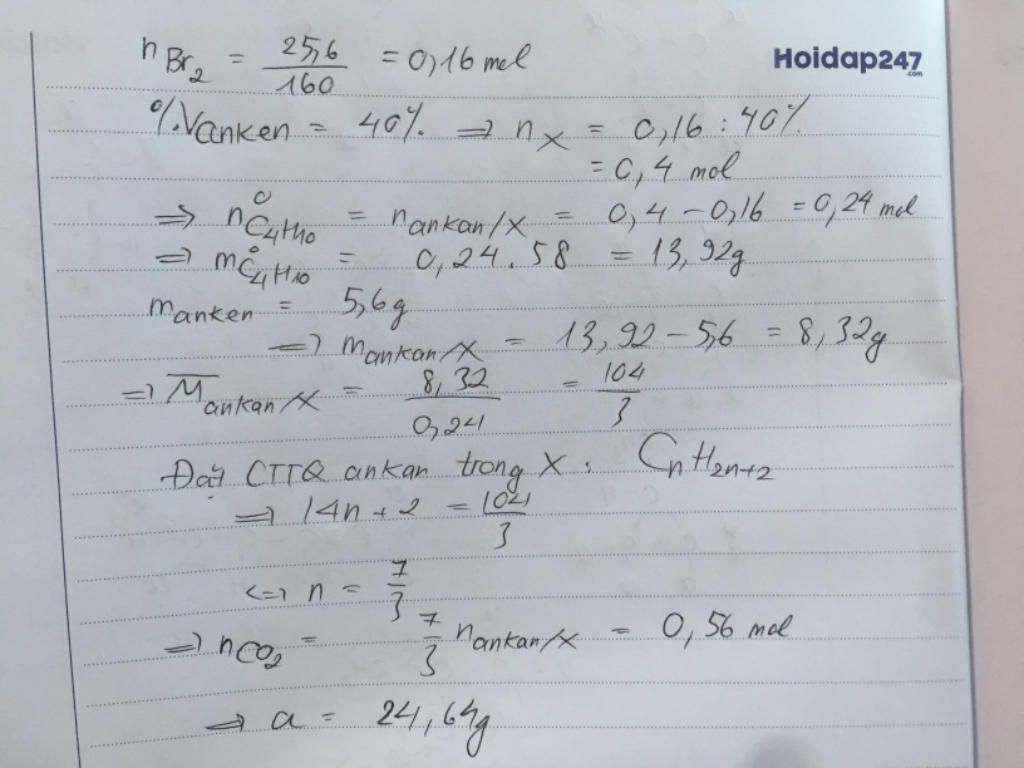 n Br2 = 25,6/160 = 0,16 mol
Hoidap247
.com
%Vanken = 40% => nX = 0,16 : 40%
= 0,4 mol
=> nC4H10 = nankan/X = 0,4 - 0,16 = 0,24 mol
=> mC4H10 = 0,24 . 58 = 13,92g
manken = 5,6g
=> mankan/X = 13,92 - 5,6 = 8,32g
=> M̅ankan/X = 8,32/0,24 = 104/3
Đặt CTTQ ankan trong X : CnH2n+2
=> 14n + 2 = 104/3
<=> n = 7/3
=> nCO2 = 7/3 nankan/X = 0,56 mol
=> a = 24,64g